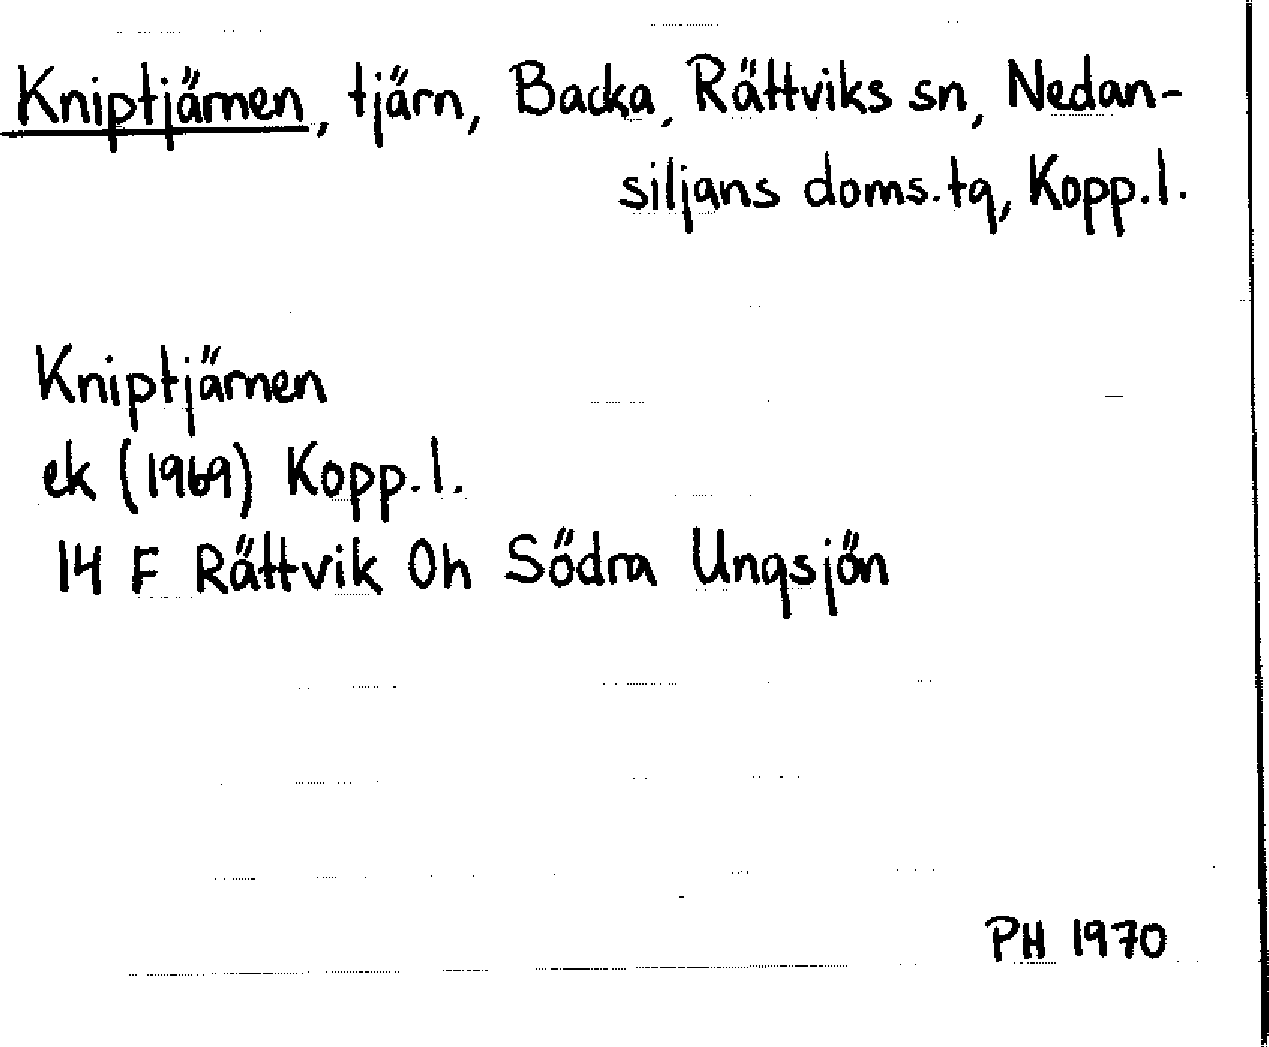 Kniptjärnen, tjärn, Backa, Rättviks sn, Nedan-
siljans doms.tg, Kopp.l.
Kniptjärnen
ek (1969) Kopp.l.
14 F Rättvik 0h Södra Ungsjön
PH 1970